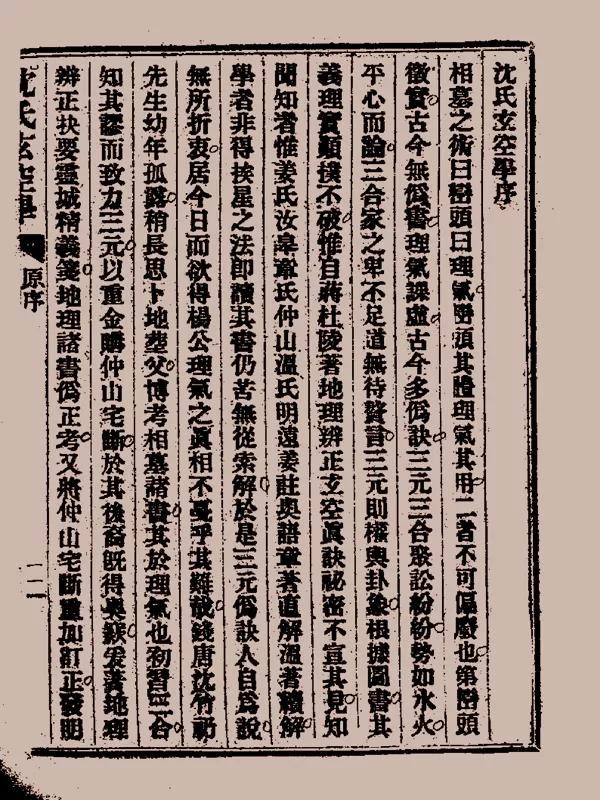 沈氏玄空學序
相墓之術曰巒頭曰理氣巒頭其體理氣其用二者不可偏廢也第巒頭
徵實古今無僞書理氣課虛古今多僞訣三元三合聚訟紛紛勢如水火
平心而論三合家之卑不足道無待贅言三元則權輿卦象根據圖書其
義理實顚撲不破惟自蔣杜陵著地理辨正玄空眞訣祕密不宣其見知
聞知者惟姜氏汝皋章氏仲山溫氏明遠姜註奧語章著直解溫著續解
學者非得挨星之法卽讀其書仍苦無從索解於是三元僞訣人自爲說
無所折衷居今日而欲得楊公理氣之眞相不戞乎其難哉錢唐沈竹礽
先生幼年孤露稍長思卜地葬父博考相墓諸書其於理氣也初習三合
知其謬而致力三元以重金購仲山宅斷於其後裔旣得奧竅爰著地理
辨正抉要靈城精義箋地理諸書僞正考又將仲山宅斷重加訂正發明
沈氏玄空學
原序
二